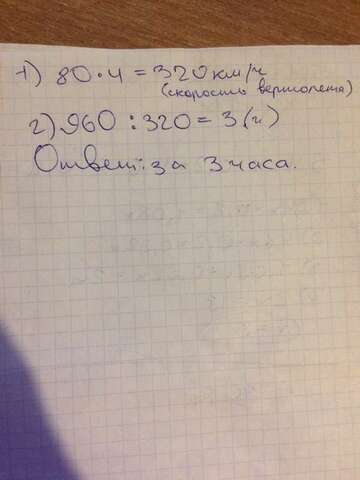 1) 80·4=320км/ч
(скорость вертолета)
2) 960:320=3(ч)
Ответ: за 3 часа.